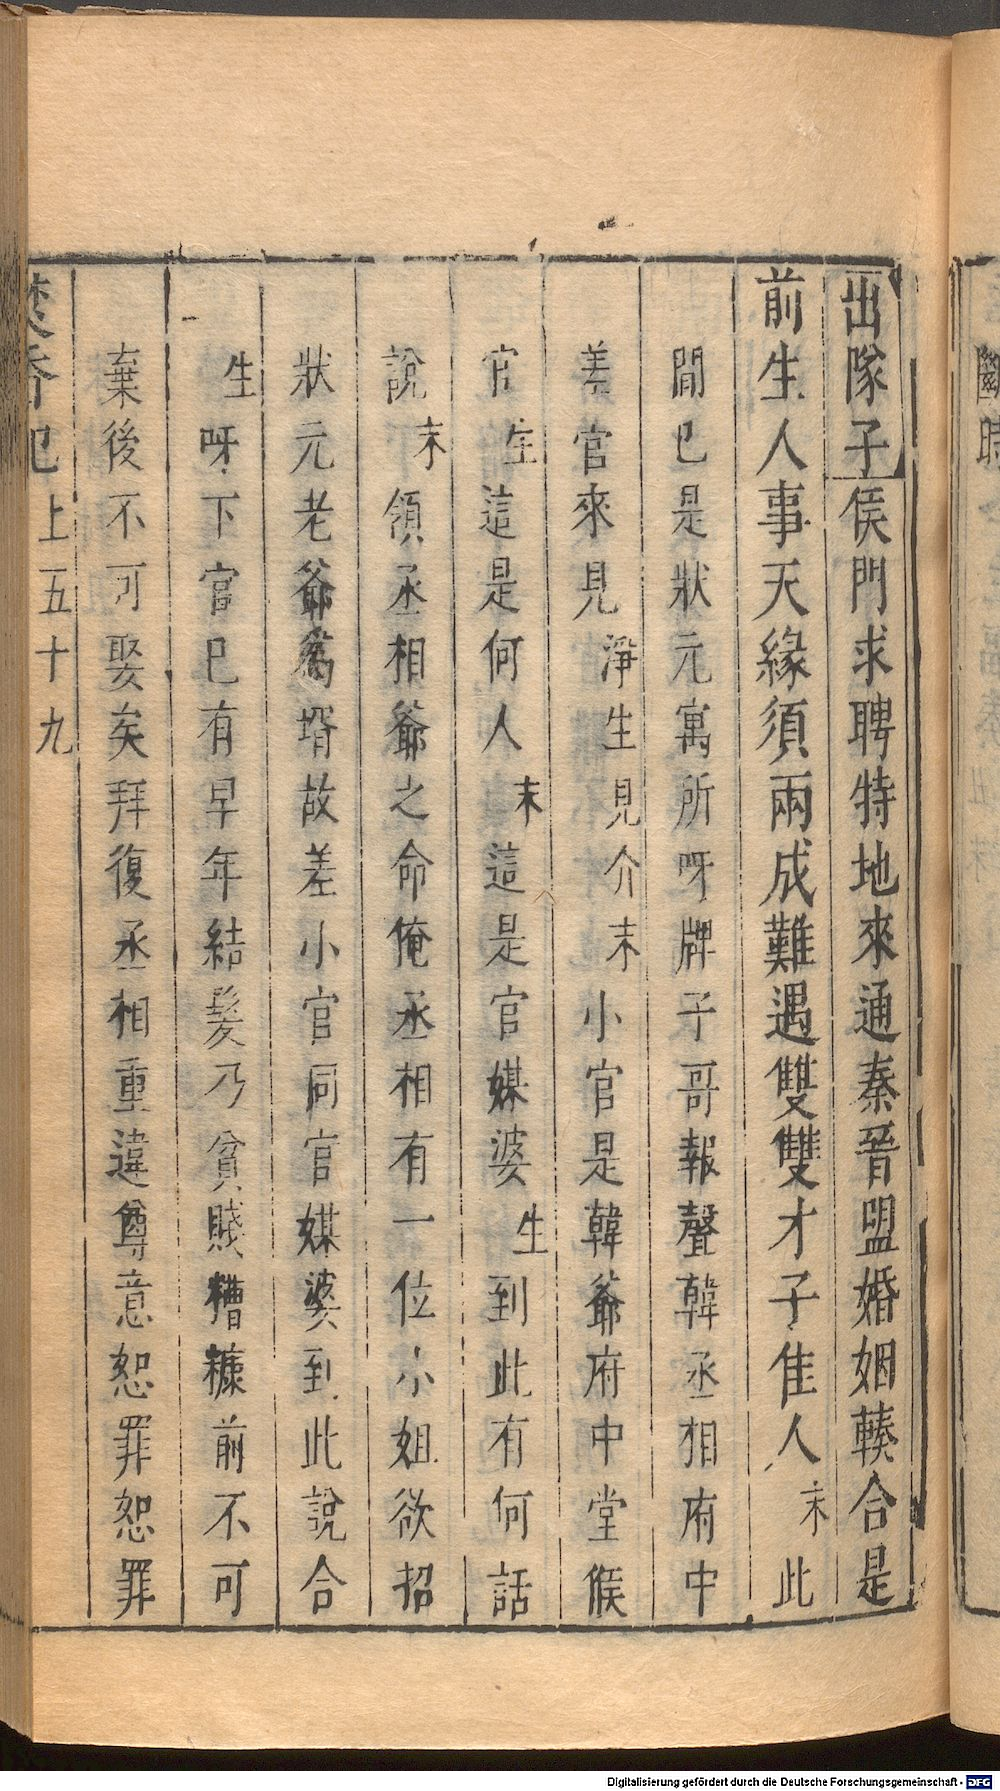 出隊子侯門求聘特地來通秦晉盟婚姻輳合是
前生人事天緣須兩成難遇雙雙才子佳人末此
間已是狀元寓所呀牌子哥報聲韓丞相府中
差官來見淨生見介末小官是韓爺府中堂候
官生這是何人末這是官媒婆生到此有何話
說末領丞相爺之命俺丞相有一位小姐欲招
狀元老爺爲壻故差小官同官媒婆到此說合
生呀下官已有早年結髮乃貧賤糟糠前不可
棄後不可娶矣拜復丞相重違尊意恕罪恕罪
焚香記 上五十九
時
Digitalisierung gefördert durch die Deutsche Forschungsgemeinschaft - DFG